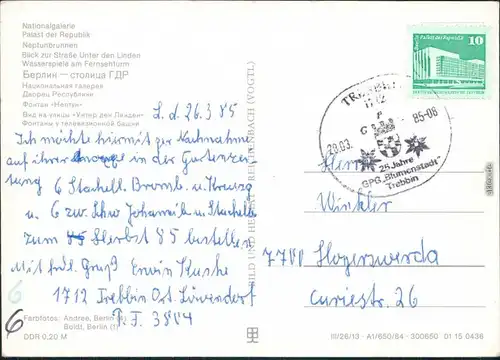 Nationalgalerie
Palast der Republik
Neptunbrunnen
Blick zur Straße Unter den Linden
Wasserspiele am Fernsehturm
Берлин — столица ГДР
Национальная галерея
Дворец Республики
Фонтан «Нептун»
Вид на улицы «Унтер ден Линден»
Фонтаны у телевизионной башни
L. d. 26.3.85
Ich möchte hiermit per Nachnahme
auf ihrer in der Gartenzei-
tung 6 Stachell. Bromb. u.
u. 6 Johannib. u.
zum Herbst 85 bestellen
Mit frdl. Gruß Erwin
1712 Trebbin Ort. Löwendorf
P.F. 3804
Farbfotos: Andree, Berlin (4),
Boldt, Berlin (1)
DDR 0,20 M
BILD UND HEIMAT REICHENBACH (VOGTL)
10
TREBBIN
1712
28.03. 85-08
25 Jahre
GPG „Blumenstadt"
Trebbin
Herrn
Winkler
7700 Hoyerswerda
Curiestr. 26
6
6
III/26/13 A1/650/84 300650 01 15 0436